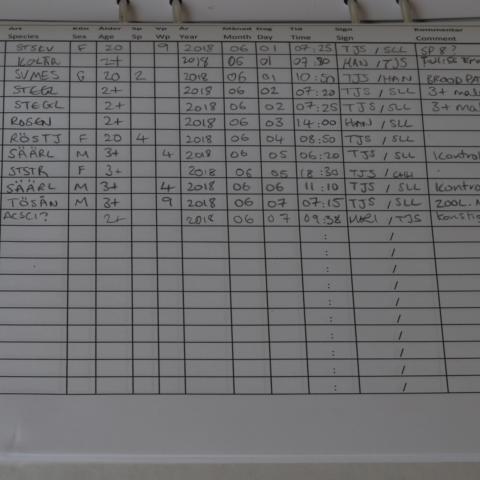 Art Kön Ålder Sp Vp År Månad Dag Tid Sign Kommentar
Species Sex Age Sp Wp Year Month Day Time Sign Comment
STSEV F 20 9 2018 06 01 07:25 TJS / SLL SP 8?
KOLTR 2+ 2018 06 01 07:30 HAN / TJS
SVMES G 20 2 2018 06 01 10:50 TJS / HAN BROOD PA
STEGL 2+ 2018 06 02 07:20 TJS / SLL 3+ ma
STEGL 2+ 2018 06 02 07:25 TJS / SLL 3+ ma
ROSEN 2+ 2018 06 03 14:00 HAN / SLL
RÖSTJ F 20 4 2018 06 04 08:50 TJS / SLL
SÄÄRL M 3+ 4 2018 06 05 06:20 TJS / SLL Kontrol
STSTR F 3+ 2018 06 05 18:30 TJS /
SÄÄRL M 3+ 4 2018 06 06 11:10 TJS / SLL Kontro
TÖSÅN M 3+ 9 2018 06 07 07:15 TJS / SLL ZOOL.
ACSCI? 2+ 2018 06 07 09:38 / TJS Konstig
: /
: /
: /
: /
: /
: /
: /
: /
: /